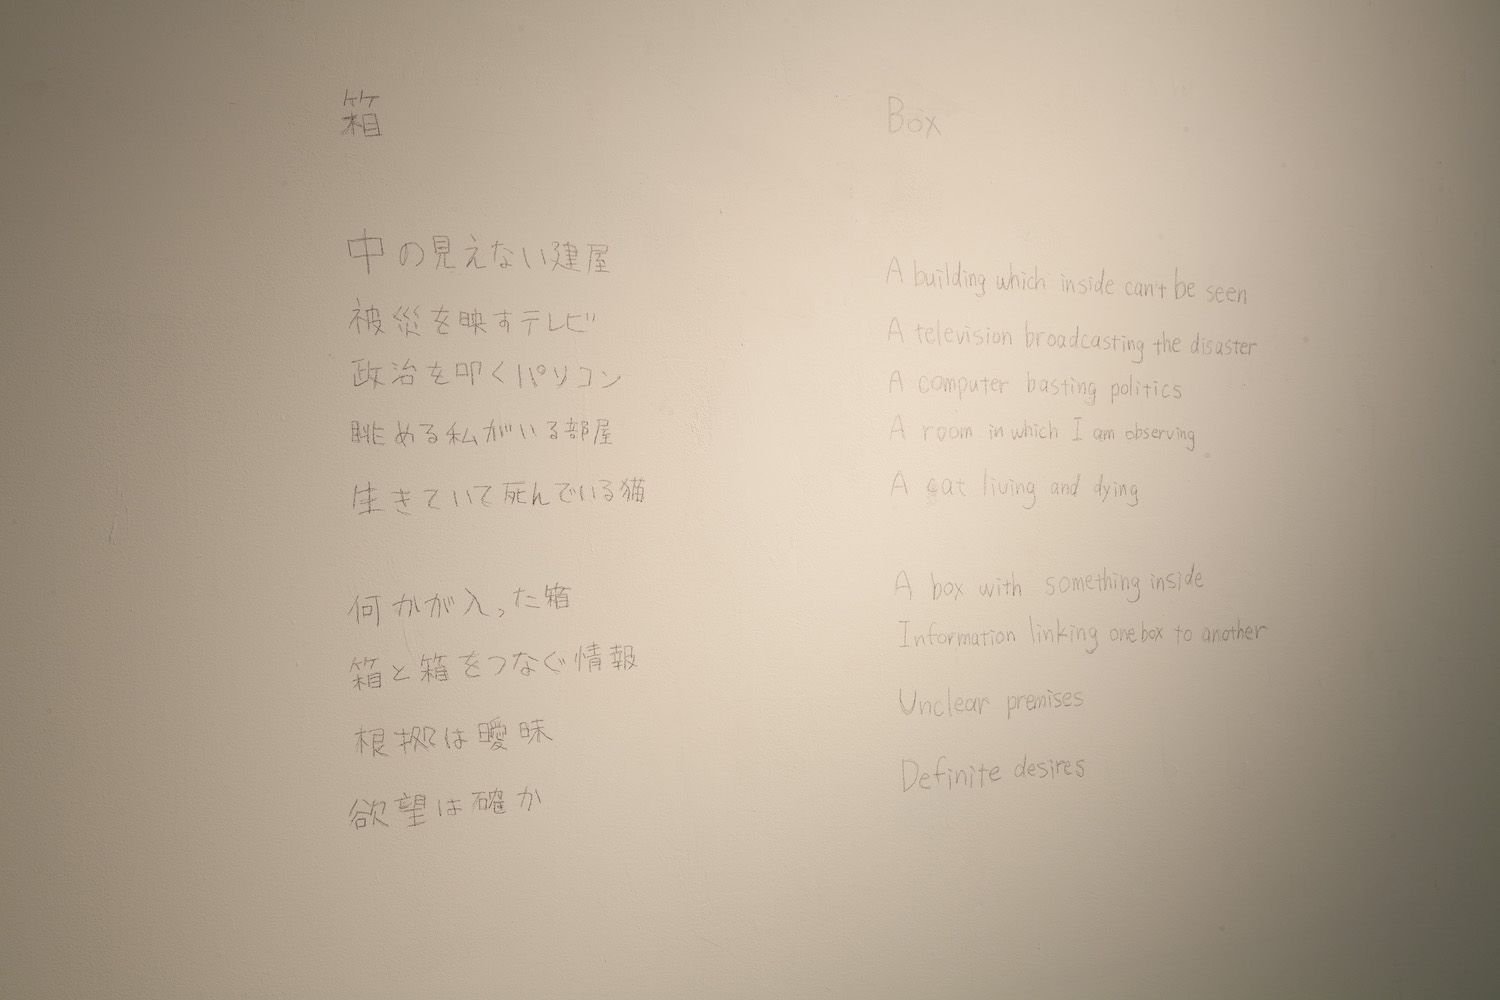 箱
中の見えない建屋
被災を映すテレビ
政治を叩くパソコン
眺める私がいる部屋
生きていて死んでいる猫
何かが入った箱
箱と箱をつなぐ情報
根拠は曖昧
欲望は確か
Box
A building which inside can't be seen
A television broadcasting the disaster
A computer basting politics
A room in which I am observing
A cat living and dying
A box with something inside
Information linking one box to another
Unclear premises
Definite desires